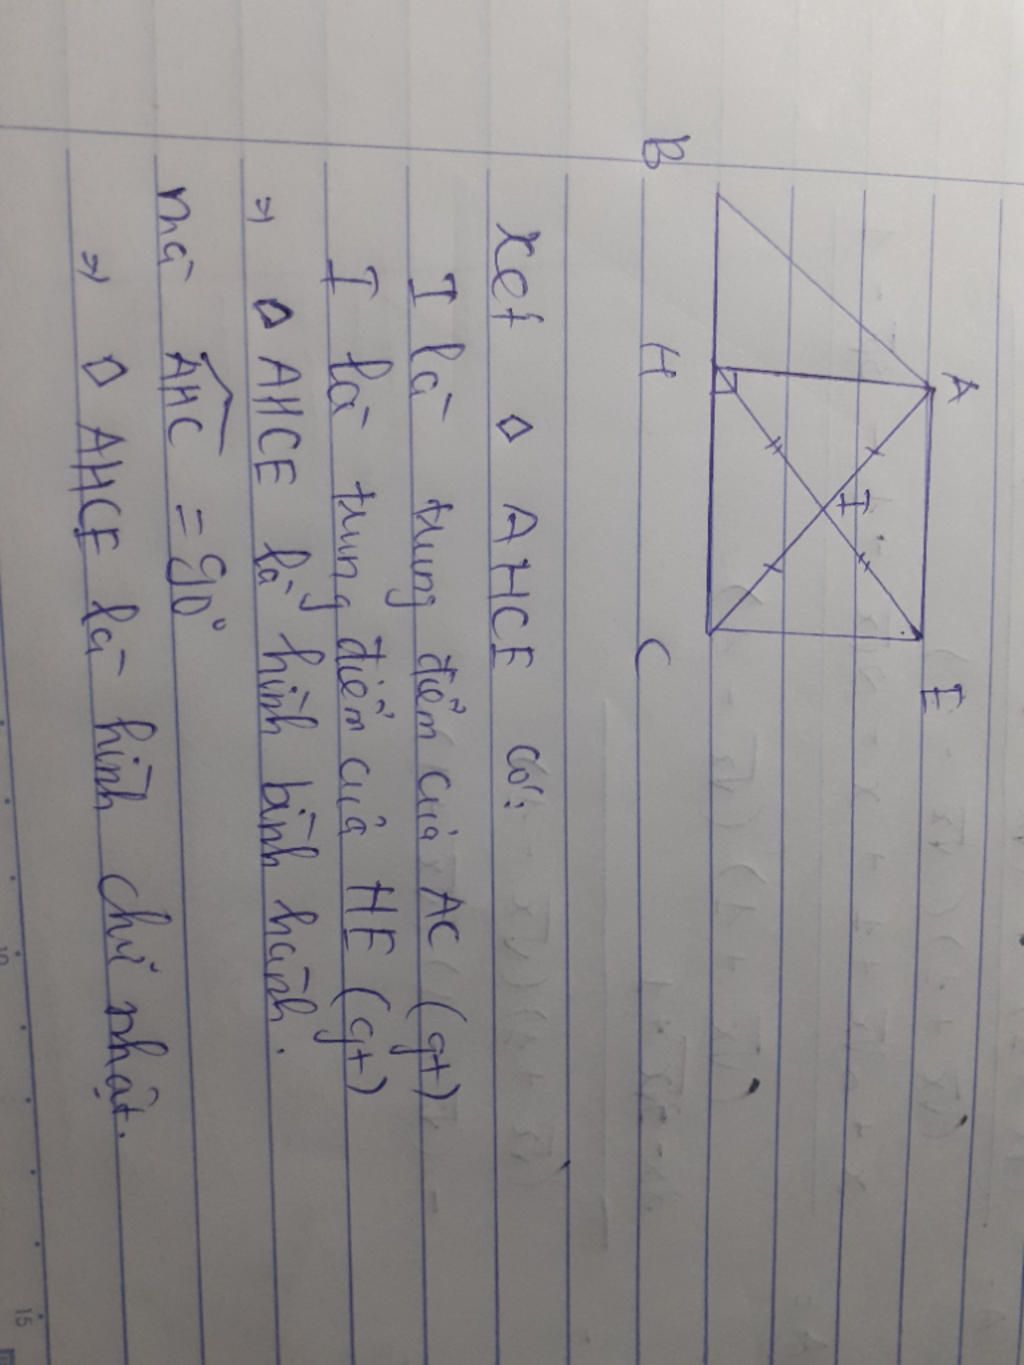 A
E
I
B
H
C
Xét ◇ AHCE có:
I là trung điểm của AC (gt)
I là trung điểm của HE (gt)
⇒ ◇ AHCE là hình bình hành.
mà AHC = 90°
⇒ ◇ AHCE là hình chữ nhật.
15